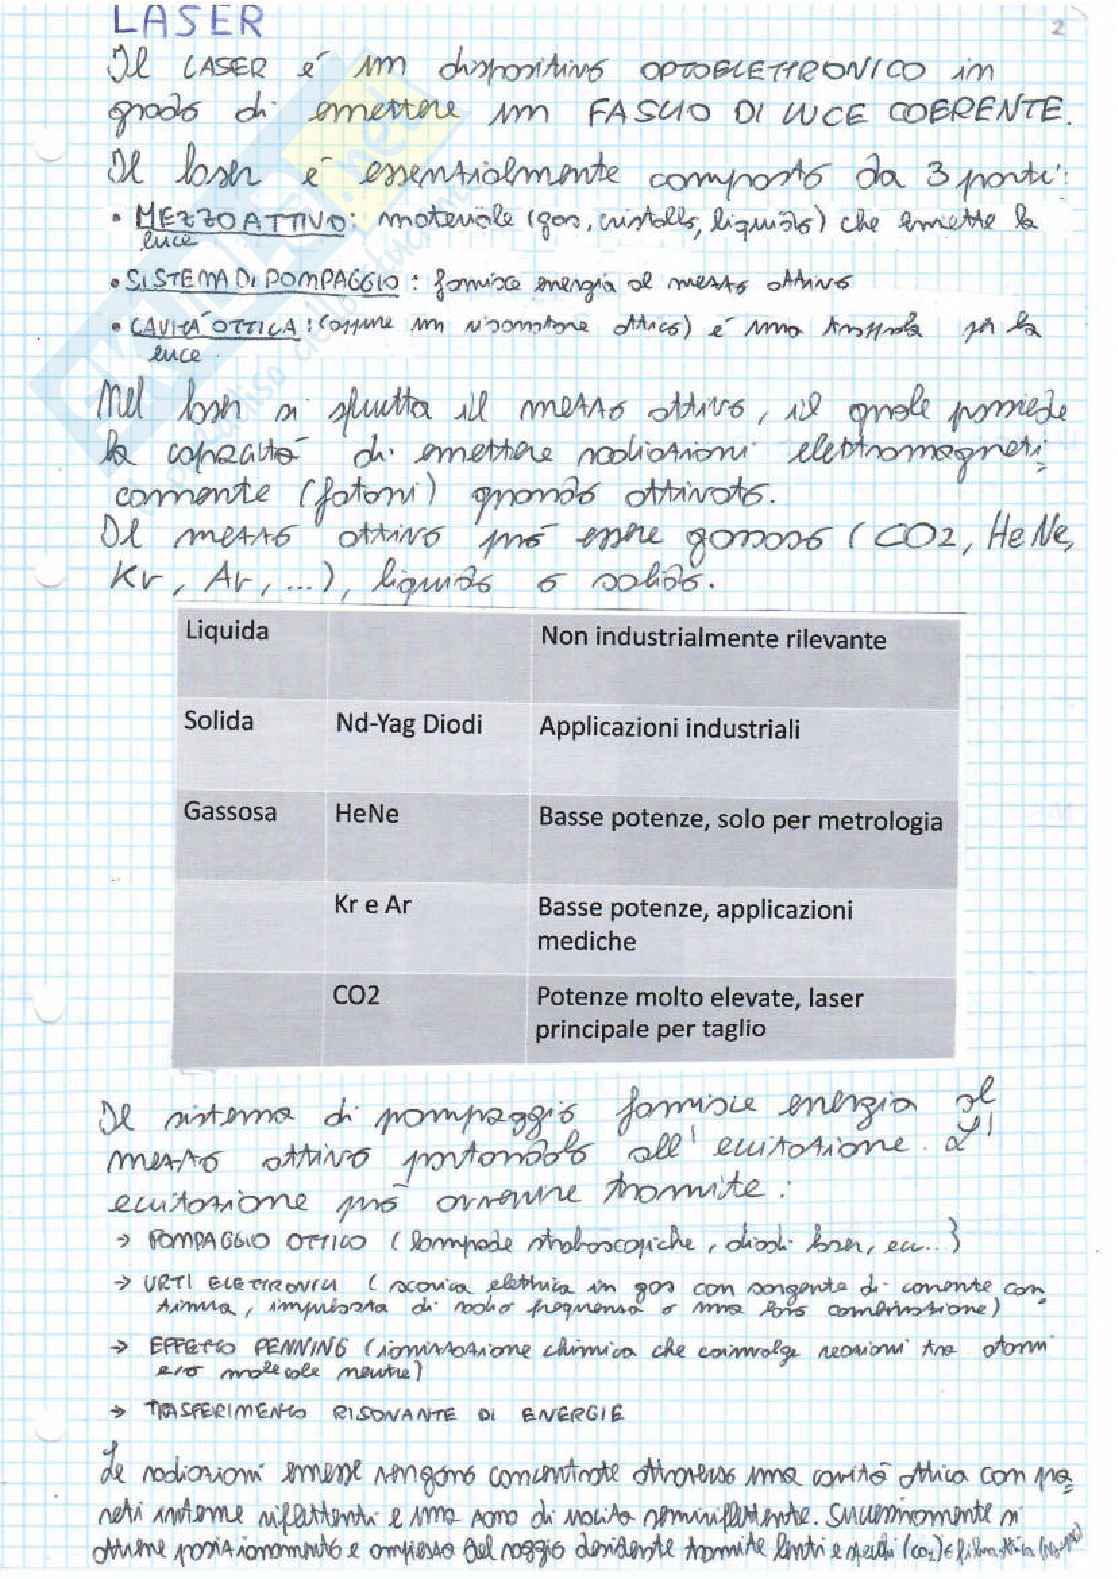 LASER
2
Il LASER é un dispositivo OPTOELETTRONICO in
grado di emettere un FASCIO DI LUCE COERENTE.
Il laser é essenzialmente composto da 3 parti:
• MEZZO ATTIVO: materiale (gas, cristallo, liquido) che emette la
luce
• SISTEMA DI POMPAGGIO: fornisce energia al mezzo attivo
• CAVITÁ OTTICA: (oppure un risonatore ottico) é una trappola per la
luce.
Nel laser si sfrutta il mezzo attivo, il quale possiede
la capacitá di emettere radiazioni elettromagneti
camente (fotoni) quando attivato.
Il mezzo attivo puó essere gassoso (CO2, HeNe,
Kr, Ar, ...), liquido o solido.
Liquida Non industrialmente rilevante
Solida Nd-Yag Diodi Applicazioni industriali
Gassosa HeNe Basse potenze, solo per metrologia
Kr e Ar Basse potenze, applicazioni
mediche
CO2 Potenze molto elevate, laser
principale per taglio
Il sistema di pompaggio fornisce energia al
mezzo attivo portandolo all'eccitazione. L'
eccitazione puó avvenire tramite:
→ POMPAGGIO OTTICO (lampade stroboscopiche, diodi laser, ecc...)
→ URTI ELETTRONICI (scarica elettrica in gas con sorgente di corrente con
tinua, impulsata di radio frequenza o una loro combinazione)
→ EFFETTO PENNING (ionizzazione chimica che coinvolge reazioni tra atomi
e/o molecole neutre)
→ TRASFERIMENTO RISONANTE DI ENERGIE
Le radiazioni emesse vengono concentrate attraverso una cavitá ottica con pa
reti interne riflettenti e una zona di uscita semiriflettente. Successivamente si
ottiene posizionamento e ampiezza del raggio desiderate tramite lenti e specchi (CO2) o fibra ottica